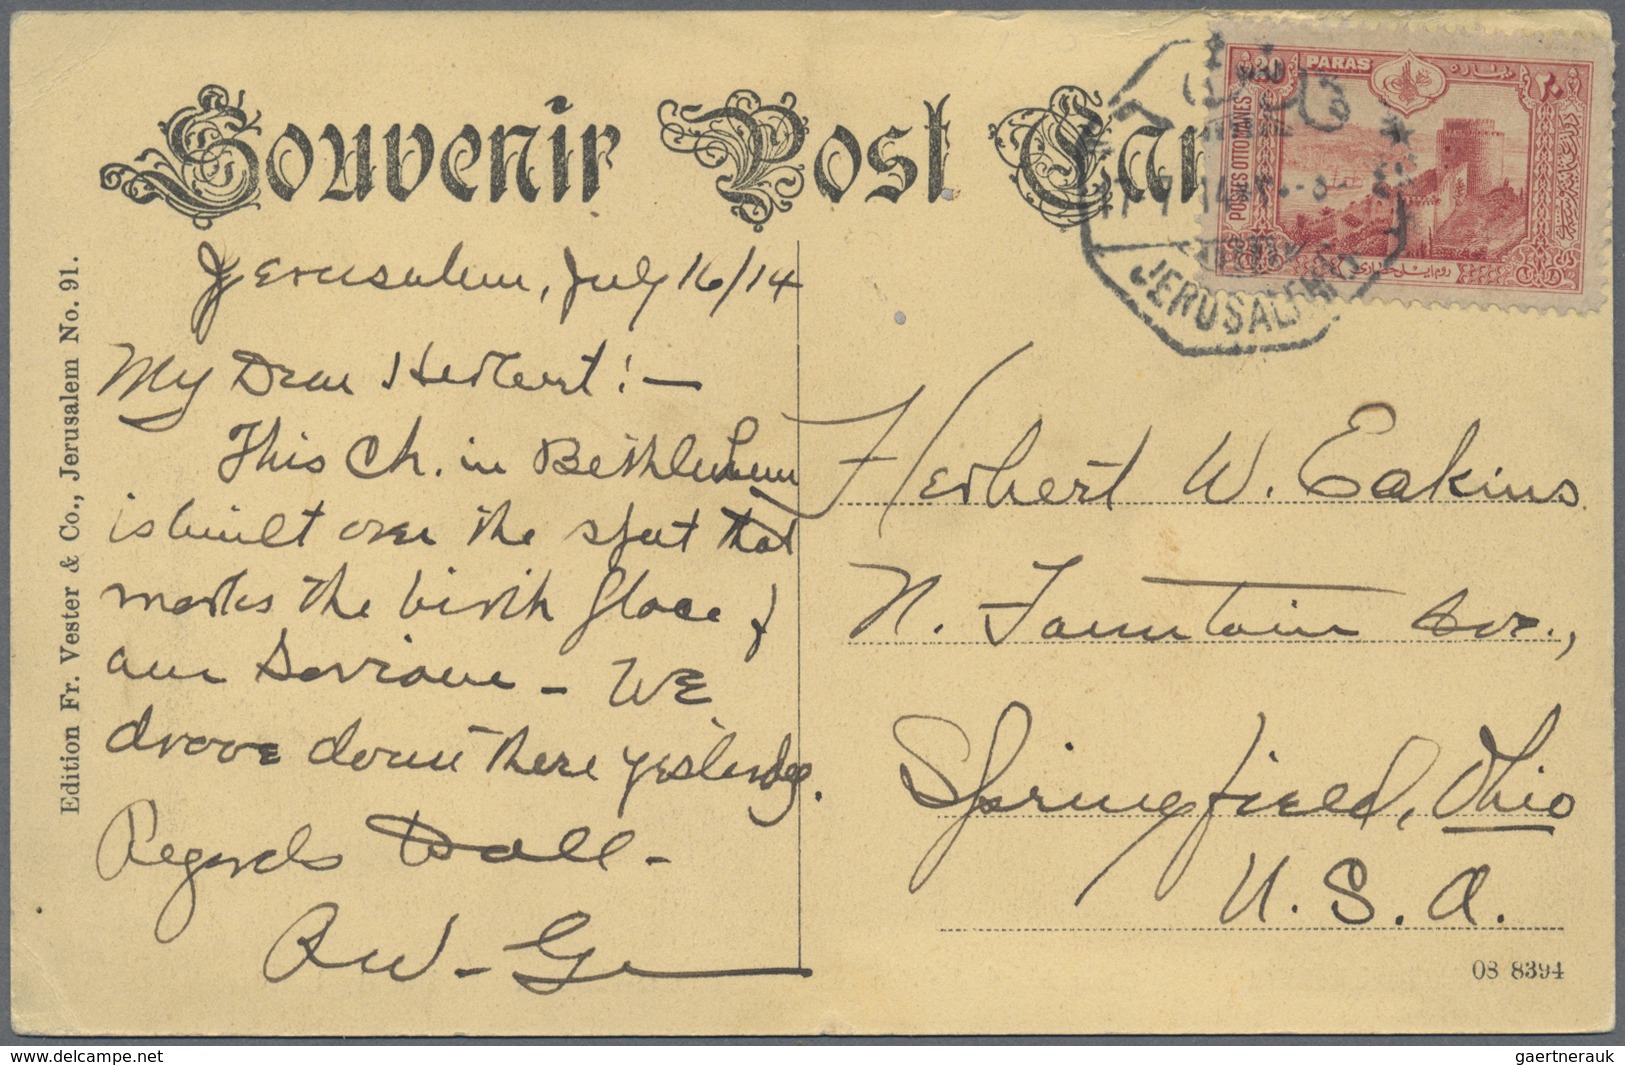 Souvenir Post Car
Edition Fr. Vester & Co., Jerusalem No. 91.
Jerusalem, July 16/14
My Dear Herbert! —
This Ch. in Bethlehem
is built over the spot that
marks the birth place of
our Saviour - WE
drove down there yesterday.
Regards to all -
20 PARAS
POSTES OTTOMANES
٢٠
روم ايلى حصارى
JERUSALEM
Herbert W. Eakins
N. Fountain Ave.,
Springfield, Ohio
U. S. A.
08 8394
delcampe.net
gaertnerauk